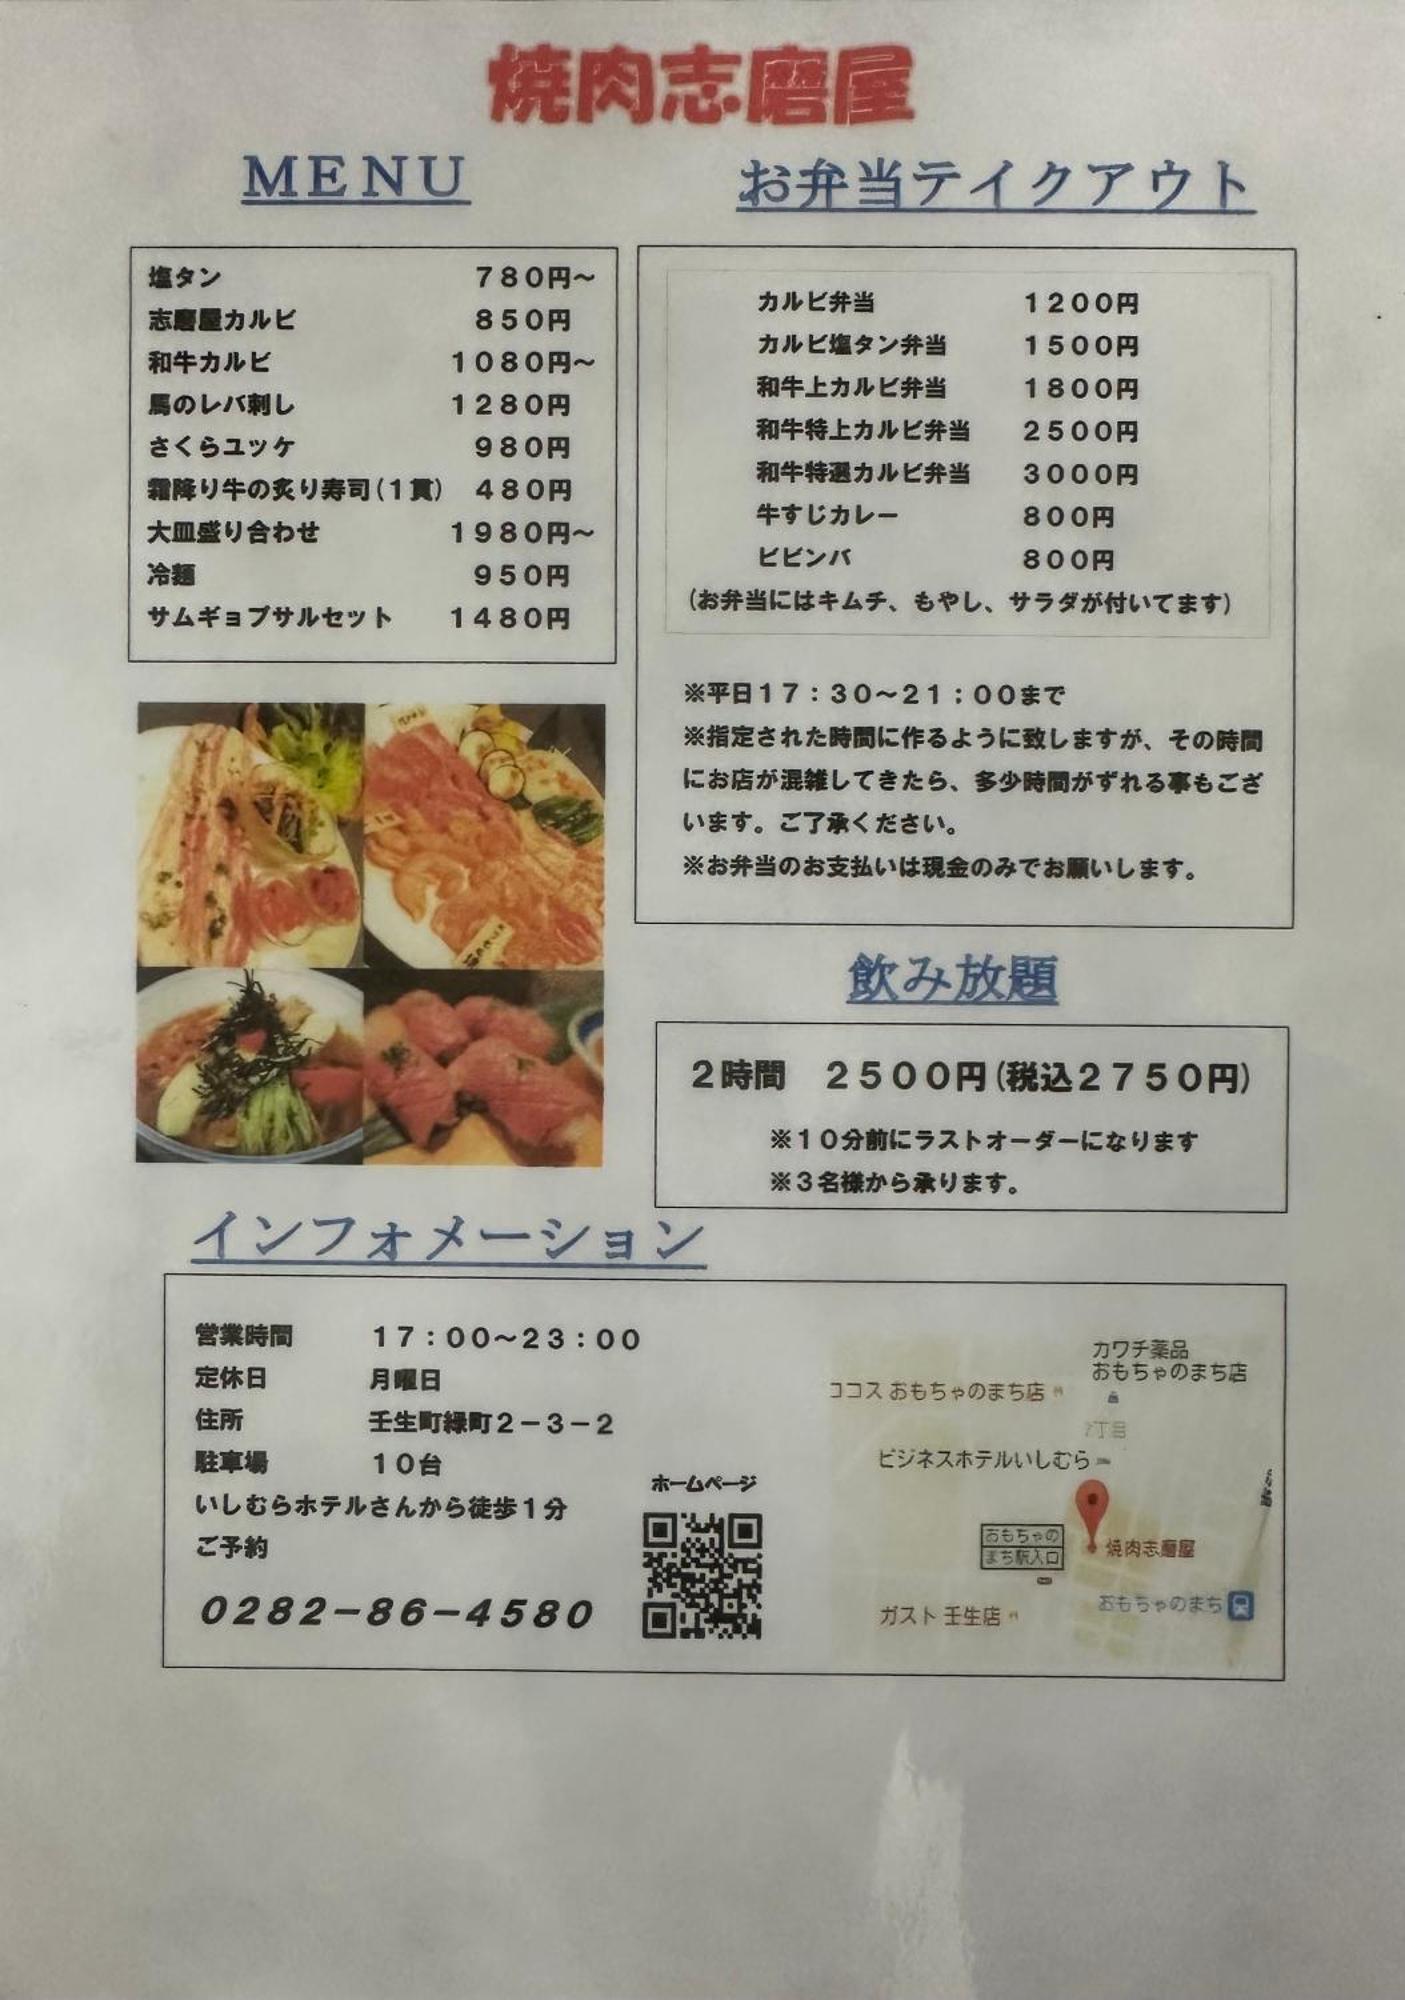 焼肉志磨屋
MENU
塩タン 780円～
志磨屋カルビ 850円
和牛カルビ 1080円～
馬のレバ刺し 1280円
さくらユッケ 980円
霜降り牛の炙り寿司(1貫) 480円
大皿盛り合わせ 1980円～
冷麺 950円
サムギョプサルセット 1480円
お弁当テイクアウト
カルビ弁当 1200円
カルビ塩タン弁当 1500円
和牛上カルビ弁当 1800円
和牛特上カルビ弁当 2500円
和牛特選カルビ弁当 3000円
牛すじカレー 800円
ビビンバ 800円
(お弁当にはキムチ、もやし、サラダが付いてます)
※平日17：30～21：00まで
※指定された時間に作るように致しますが、その時間
にお店が混雑してきたら、多少時間がずれる事もござ
います。ご了承ください。
※お弁当のお支払いは現金のみでお願いします。
飲み放題
2時間 2500円(税込2750円)
※10分前にラストオーダーになります
※3名様から承ります。
インフォメーション
営業時間 17：00～23：00
定休日 月曜日
住所 壬生町緑町2－3－2
駐車場 10台
いしむらホテルさんから徒歩1分
ご予約
0282－86－4580
ホームページ
カワチ薬品
おもちゃのまち店
ココス おもちゃのまち店
2丁目
ビジネスホテルいしむら
おもちゃの
まち駅入口
焼肉志磨屋
おもちゃのまち
ガスト 壬生店